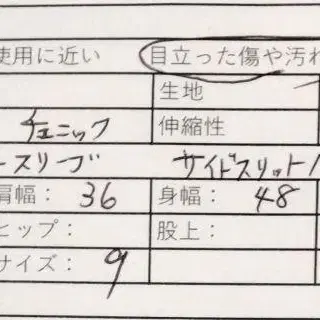 使用に近い 目立った傷や汚れ
生地
チュニック 伸縮性
ースリーブ サイドスリット
肩幅： 36 身幅： 48
ヒップ： 股上：
サイズ： 9